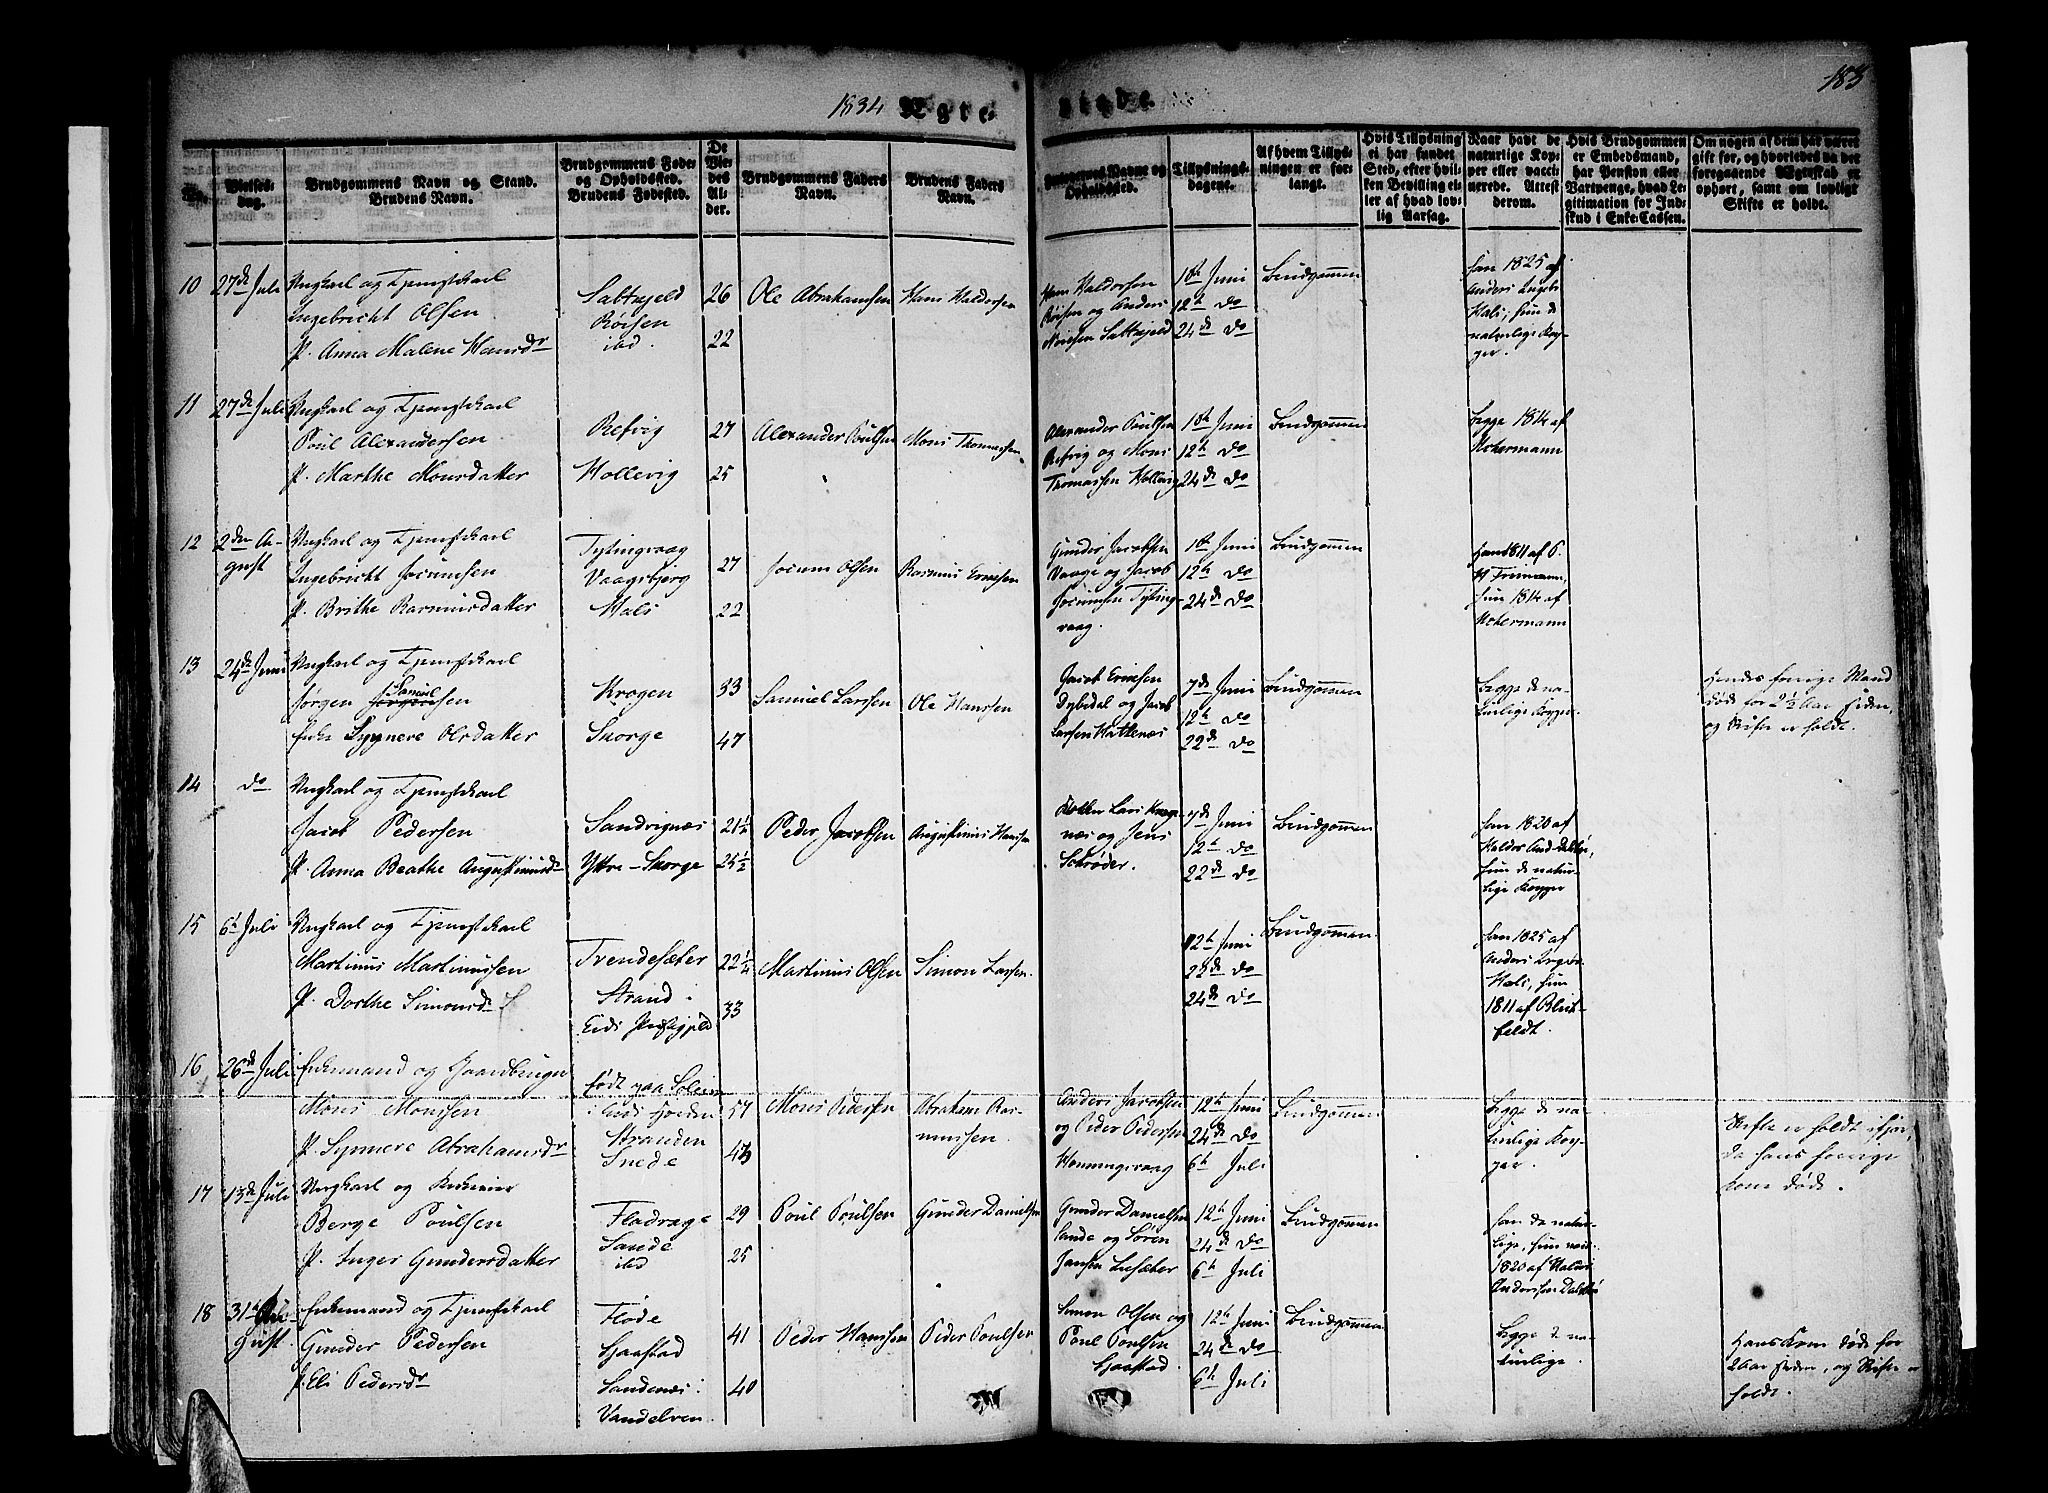 1834 Ægte
viede.
183
No.
Vielses-
dag.
Brudgommens Navn og Stand.
Brudens Navn.
Brudgommens Føde-
og Opholdssted.
Brudens Fødested.
De
Vie-
des
Al-
der.
Brudgommens Faders
Navn.
Brudens Faders
Navn.
Forlovernes Navne og
Opholdssted.
Tillysnings-
dagene.
Af hvem Tillys-
ningen er for-
langt.
Hvis Tillysning
ei har fundet
Sted, efter hvil-
ken Bevilling el-
ler af hvad lov-
lig Aarsag.
Naar havt de
naturlige Kop-
per eller vacci-
nerede. Attest
derom.
Hvis Brudgommen
er Embedsmand,
har Pension eller
Vartpenge, hvad Le-
gitimation for Ind-
skud i Enke-Cassen.
Om nogen af dem har været
gift før, og hvorledes da det
foregaaende Ægteskab er
ophørt, samt om lovligt
Skifte er holdt.
10 27de Juli
Ungkarl og Tjenestkarl
Ingebricht Olsen
P. Anna Malene Hansdr
Saltkjeld
Røisen
ibd.
26
22
Ole Abrahamsen
Hans Haldorsen
Hans Haldorsen
Røisen og Anders
Saltkjeld
1ste Juni
12te do
24de do
Brudgommen
han 1825 af
Anders Ingebr.
Hals, hun de
naturlige Kop-
per.
11 27de Juli
Ungkarl og Tjenestkarl
Poul Alexandersen
P. Marthe Monsdatter
Refvig
Hollevig
27
25
Alexander Poulsen
Mons Thomassen
Alexander Poulsen
Refvig og Mons
Thomassen Hollevig
1ste Juni
12te do
24de do
Brudgommen
begge 1814 af
Ackermann
12 2den Au-
gust
Ungkarl og Tjenestkarl
Ingebricht Jocumsen
P. Brithe Rasmusdatter
Tytingvaag
Vaagsbjerg
Hals
27
22
Jocum Olsen
Rasmus Ernsen
Gunder Jacobsen
Vaage og Jacob
Jocumsen Tyting-
vaag.
1ste Juni
12te do
24de do
Brudgommen
Hans 1811 af
Friimann,
hun 1814 af
Ackermann
13 24de Juni
Ungkarl og Tjenestkarl
Samuel
Jørgen Jørgensen
Enke Synnere Olsdatter
Krogen
Skorge
33
47
Samuel Larssen
Ole Hanssen
Jacob Ernsen
Dybedal og Jacob
Larsen Hattenæs
7de Juni
12te do
22de do
Brudgommen
begge de na-
turlige Kopper.
Hendes forrige Mand
døde for 2½ Aar siden,
og Skifte er holdt.
14 do
Ungkarl og Tjenestkarl
Jacob Pedersen
P. Anna Beathe Augustinusdr
Sandvignæs
Yttre-Skorge
21½
25½
Peder Jacobsen
Augustinus Hansen
Lars
næs og Jens
Schrøder.
7de Juni
12te do
22de do
Brudgommen
han 1820 af
Haldor And. Dalsbø,
hun de natur-
lige Kopper
15 6te Juli
Ungkarl og Tjenestkarl
Martinus Martinussen
P. Dorthe Simonsdr
Tvendesæter
Strand
Eids Præstegjeld
22¼
33
Martinus Olsen
Simon Larssen.
12te Juni
22de do
24de do
Brudgommen
han 1825 af
Anders Ingebr.
Hals, hun
1811 af Blich-
feldt.
16 26de Juli
Enkemand og Gaardbruger
Mons Monssen
P. Synnere Abrahamsdr
født paa Solem
i Eids Fjorden
Stranden
Snede
57
43
Mons Pedersen
Abraham Ras-
mussen.
Anders Jacobsen
og Peder Pedersen
Honningsvaag
12te Juni
24de do
6te Juli
Brudgommen
begge de na-
turlige Kop-
per.
Skifte er holdt ifjor,
da hans forrige
Kone døde.
17 13de Juli
Ungkarl og
Berge Poulsen
P. Inger Gundersdatter
Fladrage
Sande
ibd
29
25
Poul Poulsen
Gunder Danielsen
Gunder Danielsen
Sande og Søren
Jansen Lisæter
12te Juni
24de do
6te Juli
Brudgommen
han de natur-
lige, hun vacc.
1820 af Haldor
Andersen Dalsbø
18 31te Au-
gust.
Enkemand og Tjenestkarl
Gunder Pedersen
P. Eli Pedersdr
Fløde
Gaastad
Sandenæs
Vandelven.
41
40
Peder Hanssen
Peder Poulsen
Simon Olsen og
Poul Poulsen
Gaastad.
12te Juni
24de do
6te Juli
Brudgommen
begge de na-
turlige.
Hans Kone døde for
2 Aar siden, og Skifte er
holdt.